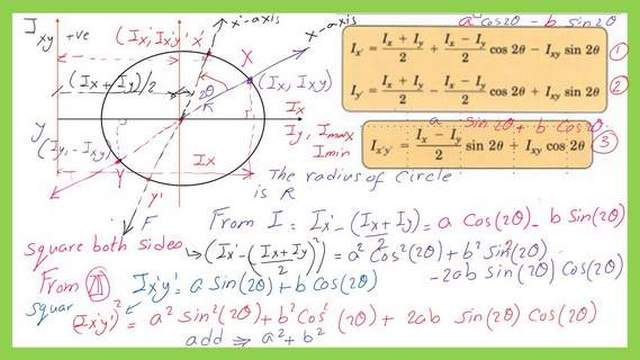 I xy +ve
(Ix', Ix'y' x'
x'-axis
x-axis
a cos2θ - b sin2θ
Ix' = (Ix + Iy)/2 + (Ix - Iy)/2 cos 2θ - Ixy sin 2θ ①
Iy' = (Ix + Iy)/2 - (Ix - Iy)/2 cos 2θ + Ixy sin 2θ ②
a sin2θ + b cos2θ
Ix'y' = (Ix - Iy)/2 sin 2θ + Ixy cos 2θ ③
(Ix + Iy)/2
2θ
R
X
(Ix, Ixy)
Ix
Iy, Imax
Imin
y
(Iy, -Ixy)
Ix
Y
y'
F
The radius of circle
is R
From I = Ix' - (Ix + Iy)/2 = a Cos(2θ) - b Sin(2θ)
square both sides ↳ (Ix' - (Ix + Iy)/2)² = a² Cos²(2θ) + b² Sin²(2θ)
-2ab sin(2θ) Cos(2θ)
From II Ix'y' = a sin(2θ) + b Cos(2θ)
squar (Ix'y')² = a² sin²(2θ) + b² Cos² (2θ) + 2ab sin(2θ) Cos(2θ)
add ⇒ a² + b²